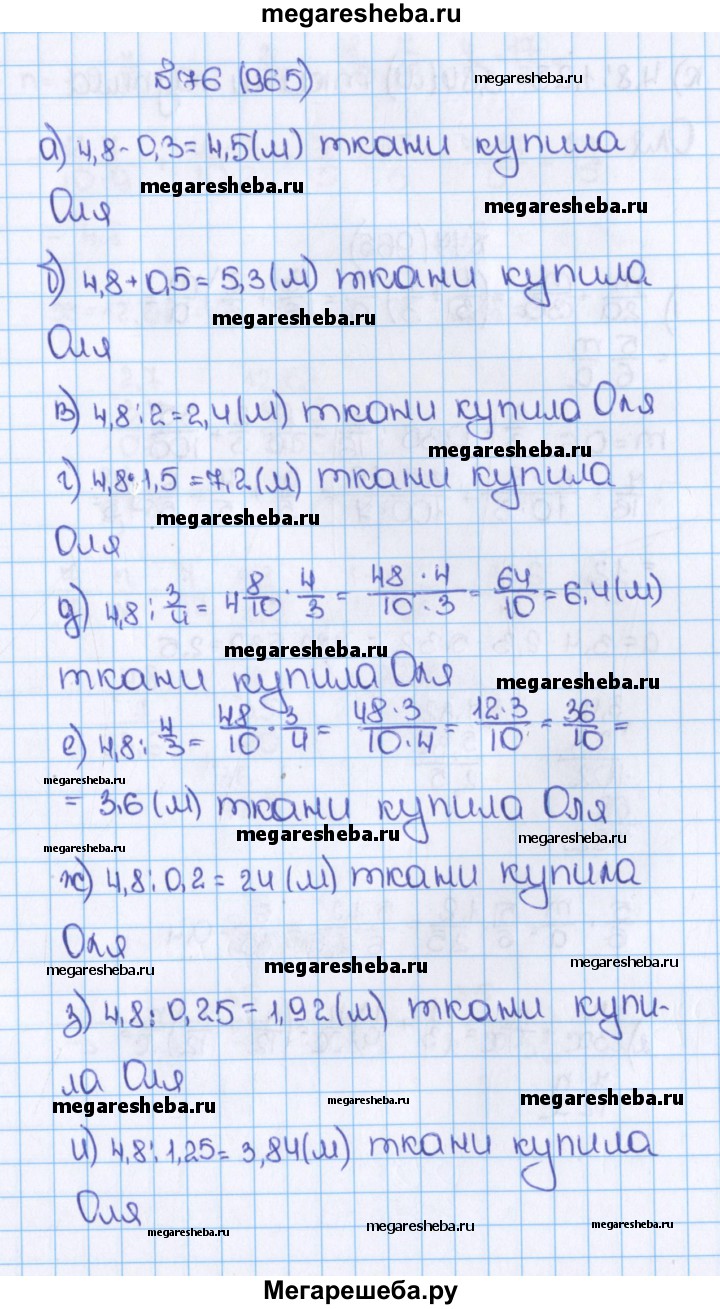 megaresheba.ru
№76 (965)
megaresheba.ru
а) 4,8 - 0,3 = 4,5 (м) ткани купила
megaresheba.ru
Оля
megaresheba.ru
б) 4,8 + 0,5 = 5,3 (м) ткани купила
megaresheba.ru
Оля
в) 4,8 : 2 = 2,4 (м) ткани купила Оля
megaresheba.ru
г) 4,8 · 1,5 = 7,2 (м) ткани купила
megaresheba.ru
Оля
д) 4,8 : 3/4 = 4 8/10 · 4/3 = 48 · 4/10 · 3 = 64/10 = 6,4 (м)
megaresheba.ru
ткани купила Оля
megaresheba.ru
е) 4,8 : 4/3 = 48/10 · 3/4 = 48 · 3/10 · 4 = 12 · 3/10 = 36/10 =
megaresheba.ru
= 3,6 (м) ткани купила Оля
megaresheba.ru megaresheba.ru
megaresheba.ru
ж) 4,8 : 0,2 = 24 (м) ткани купила
Оля
megaresheba.ru megaresheba.ru megaresheba.ru
з) 4,8 : 0,25 = 1,92 (м) ткани купи-
ла Оля
megaresheba.ru megaresheba.ru megaresheba.ru
и) 4,8 : 1,25 = 3,84 (м) ткани купила
Оля
megaresheba.ru megaresheba.ru megaresheba.ru
Мегарешеба.ру